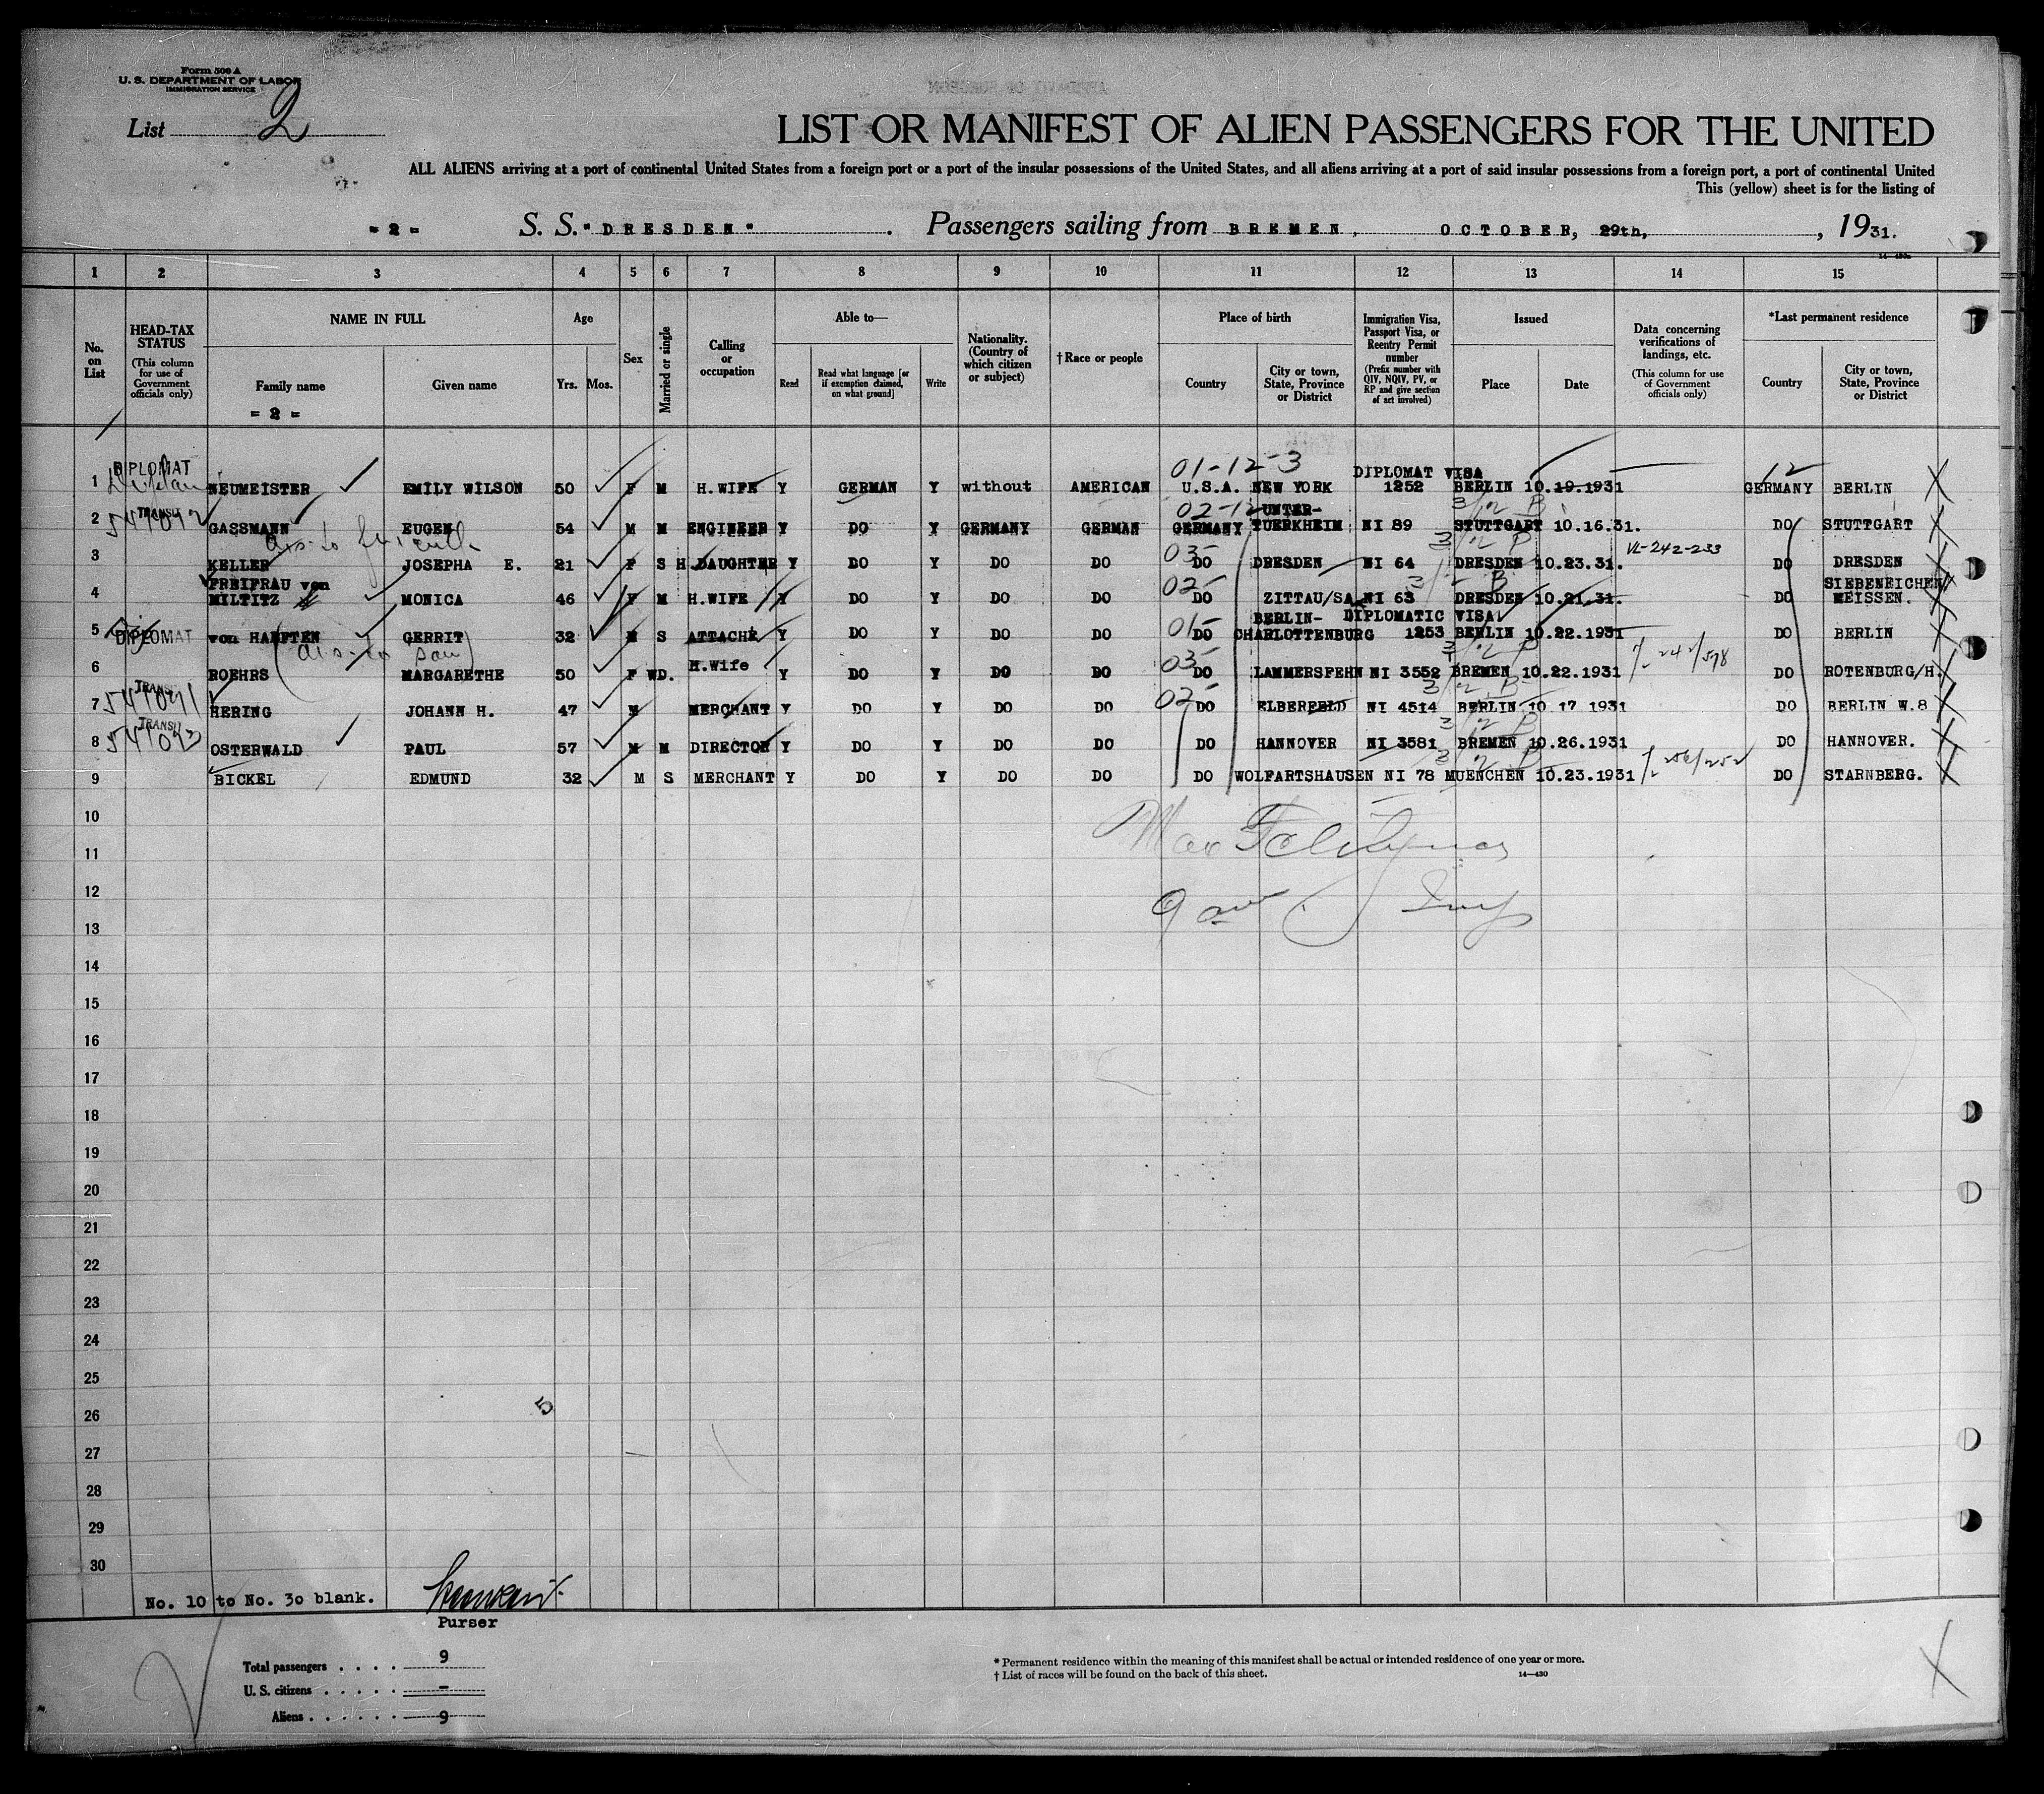 Form 500 A
U. S. DEPARTMENT OF LABOR
IMMIGRATION SERVICE
List 2
LIST OR MANIFEST OF ALIEN PASSENGERS FOR THE UNITED
ALL ALIENS arriving at a port of continental United States from a foreign port or a port of the insular possessions of the United States, and all aliens arriving at a port of said insular possessions from a foreign port, a port of continental United
This (yellow) sheet is for the listing of
= 2 = S. S. "DRESDEN". Passengers sailing from BREMEN, OCTOBER, 29th, , 1931.
1 2 3 4 5 6 7 8 9 10 11 12 13 14 15
No. on List
HEAD-TAX STATUS
(This column for use of Government officials only)
NAME IN FULL
Family name
= 2 =
Given name
Age
Yrs. Mos.
Sex
Married or single
Calling or occupation
Able to—
Read
Read what language [or if exemption claimed, on what ground]
Write
Nationality. (Country of which citizen or subject)
† Race or people
Place of birth
Country
City or town, State, Province or District
Immigration Visa, Passport Visa, or Reentry Permit number
(Prefix number with QIV, NQIV, PV, or RP and give section of act involved)
Issued
Place
Date
Data concerning verifications of landings, etc.
(This column for use of Government officials only)
*Last permanent residence
Country
City or town, State, Province or District
DIPLOMAT 01-12-3 DIPLOMAT VISA 12
1 NEUMEISTER EMILY WILSON 50 F M H.WIFE Y GERMAN Y without AMERICAN U.S.A. NEW YORK 1252 BERLIN 10.19.1931 GERMANY BERLIN
TRANSIT 547092 02-12 UNTER-
2 GASSMANN EUGEN 54 M M ENGINEER Y DO Y GERMANY GERMAN GERMANY TUERKHEIM NI 89 STUTTGART 10.16.31. DO STUTTGART
03- VL-242-233
3 KELLER JOSEPHA E. 21 F S H.DAUGHTER Y DO Y DO DO DO DRESDEN NI 64 DRESDEN 10.23.31. DO DRESDEN
FREIFRAU von 02- SIEBENEICHEN
4 MILTITZ MONICA 46 F M H.WIFE Y DO Y DO DO DO ZITTAU/SA NI 63 DRESDEN 10.21.31. DO MEISSEN.
01- BERLIN- DIPLOMATIC VISA
5 DIPLOMAT von HAEFTEN GERRIT 32 M S ATTACHE Y DO Y DO DO DO CHARLOTTENBURG 1253 BERLIN 10.22.1931 DO BERLIN
03-
6 ROEHRS MARGARETHE 50 F WD. H.Wife Y DO Y DO DO DO LAMMERSFEHN NI 3552 BREMEN 10.22.1931 DO ROTENBURG/H.
TRANSIT 547091 02-
7 HERING JOHANN H. 47 M MERCHANT Y DO Y DO DO DO ELBERFELD NI 4514 BERLIN 10 17 1931 DO BERLIN W.8
TRANSIT 547093
8 OSTERWALD PAUL 57 M M DIRECTOR Y DO Y DO DO DO HANNOVER NI 3581 BREMEN 10.26.1931 DO HANNOVER.
9 BICKEL EDMUND 32 M S MERCHANT Y DO Y DO DO DO WOLFARTSHAUSEN NI 78 MUENCHEN 10.23.1931 DO STARNBERG.
10
11
12
13
14
15
16
17
18
19
20
21
22
23
24
25
26
5
27
28
29
30
No. 10 to No. 30 blank.
Purser
Total passengers . . . . 9
U. S. citizens . . . . . -
Aliens . . . . . . 9
* Permanent residence within the meaning of this manifest shall be actual or intended residence of one year or more.
† List of races will be found on the back of this sheet. 14—430